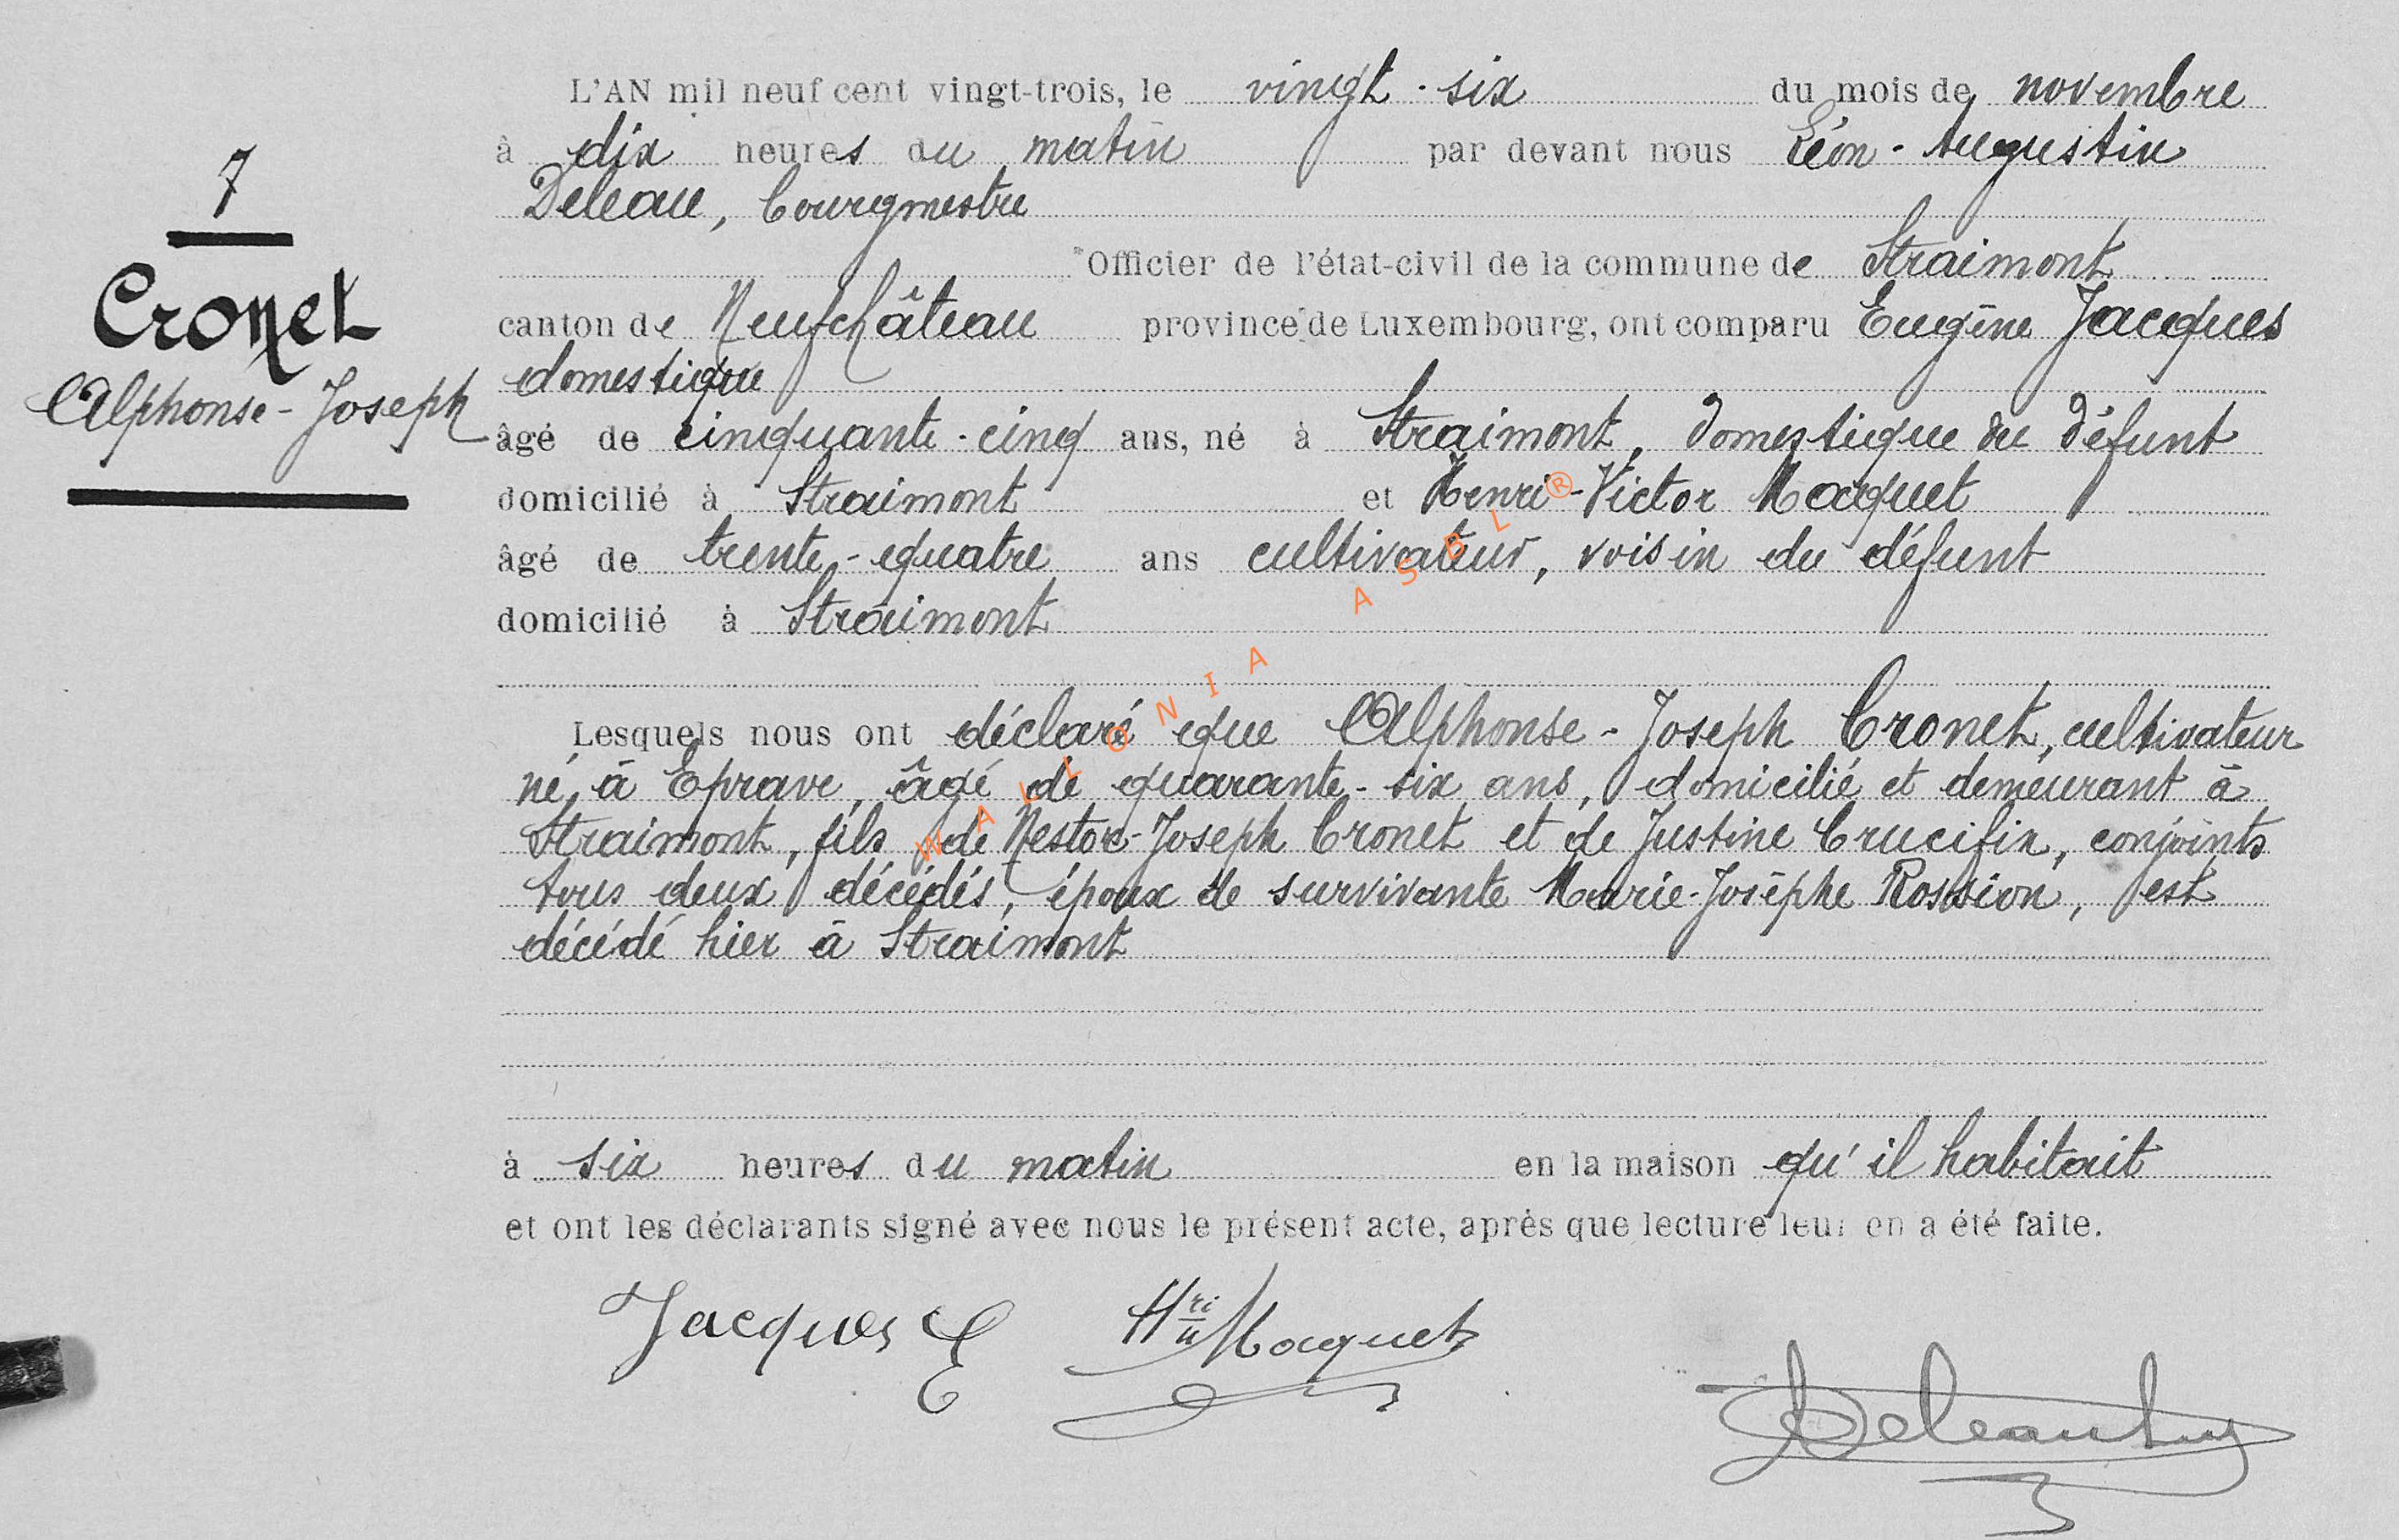 7
Cronet
Alphonse-Joseph
L'AN mil neuf cent vingt-trois, le vingt-six du mois de novembre
à dix heures du matin par devant nous Léon-Augustin
Deleau, bourgmestre
Officier de l'état-civil de la commune de Straimont
canton de Neufchâteau province de Luxembourg, ont comparu Eugène Jacques
domestique
âgé de cinquante-cinq ans, né à Straimont, domestique du défunt
domicilié à Straimont et Henri-Victor Maquet
âgé de trente-quatre ans cultivateur, voisin du défunt
domicilié à Straimont
Lesquels nous ont déclaré que Alphonse-Joseph Cronet, cultivateur
né à Eprave, âgé de quarante-six ans, domicilié et demeurant à
Straimont, fils de Nestor-Joseph Cronet et de Justine Crucifix, conjoints
tous deux décédés, époux de survivante Marie-Josèphe Rossion, est
décédé hier à Straimont
à six heures du matin en la maison qu'il habitait
et ont les déclarants signé avec nous le présent acte, après que lecture leur en a été faite.
Jacques E Hri Maquet
WALLONIA ASBL ®